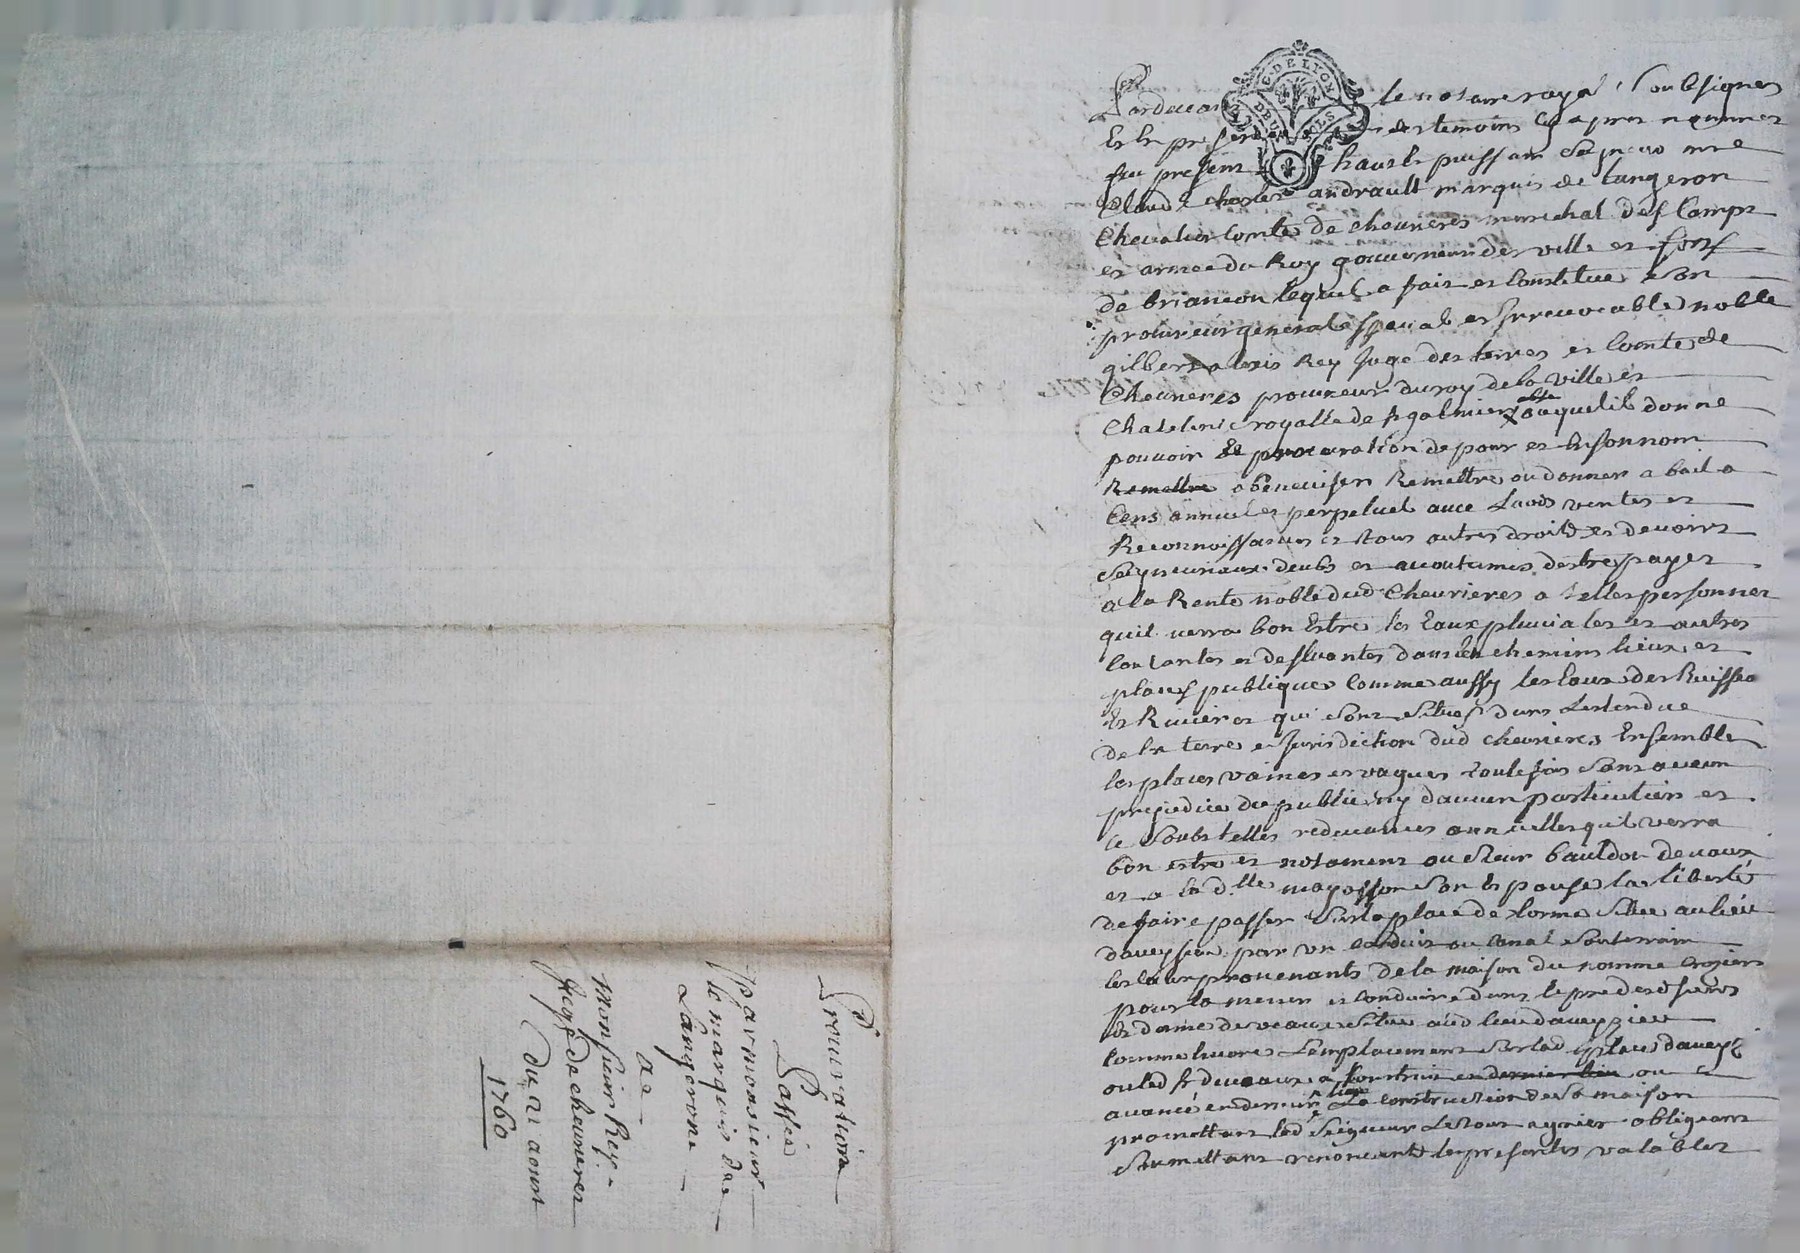 Procuration
Passée
par monsieur
le marquis de
Langeron
a
monsieur Rey
juge de chevrieres
du 21 aoust
1760
G. DE LYON
DEUX SOLS
Pardevant le notaire royal soubsignes
Et En presence des temoins cy apres nommes
fut present haut et puissant seigneur
Claude charles andrault marquis de Langeron
chevalier comte de chevrieres marechal des Camps
et armee du Roy gouverneur des ville et forts
de briancon lequel a fait et constitue son
procureur general special et Irrevocable noble
gilbert alexis Rey Juge des terres et Comte de
Chevrieres procureur du roy de la ville et
Chatelenie royalle de st galmier abst auquel il donne
pouvoir et procuration de pour et En son nom
Remettre abeneviser Remettre ou donner a bail a
Cens annuel et perpetuel avec Laods ventes et
Reconnoissances et tous autres droits et devoirs
seigneuriaux deubs et acoutumes destre payes
a la Rente noble dud Chevrieres a telles personnes
quil verra bon Estre les Eaux pluviales et autres
coulantes et defluantes dans les chemins lieux et
places publiques comme aussy les Eaux des Ruisseaux
et Rivieres qui sont situes dans Lestendue
de la terre et Jurisdiction dud chevrieres Ensemble
les places vaines et vagues toutefois sans aucun
prejudice du public ny daucun particulier et
ce soubs telles redevances annuelles quil verra
bon estre et notament au sieur bauldon devaux
et a la d.lle son Epouse la liberté
de faire passer sur la place de lorme situe au lieu
daveysieu par un conduit ou canal souterrain
les Eaux provenants de la maison du nomme crozier
pour la mener et conduire dans le pré desd sieurs
et dame devaux situe aud lieu daveyzieu
comme Lemplacement sur lad place
ou led sr devaux a construit en dernier lieu ou
avancé en dernier lieu La construction de sa maison
promettant led seigneur Le tout agreer obligeant
soumettant renoncant les presentes valables